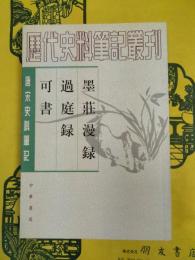 歷代史料筆記叢刊
唐宋史料筆記
墨莊漫録
過庭録
可書
中華書局
株式会社 朋友書店